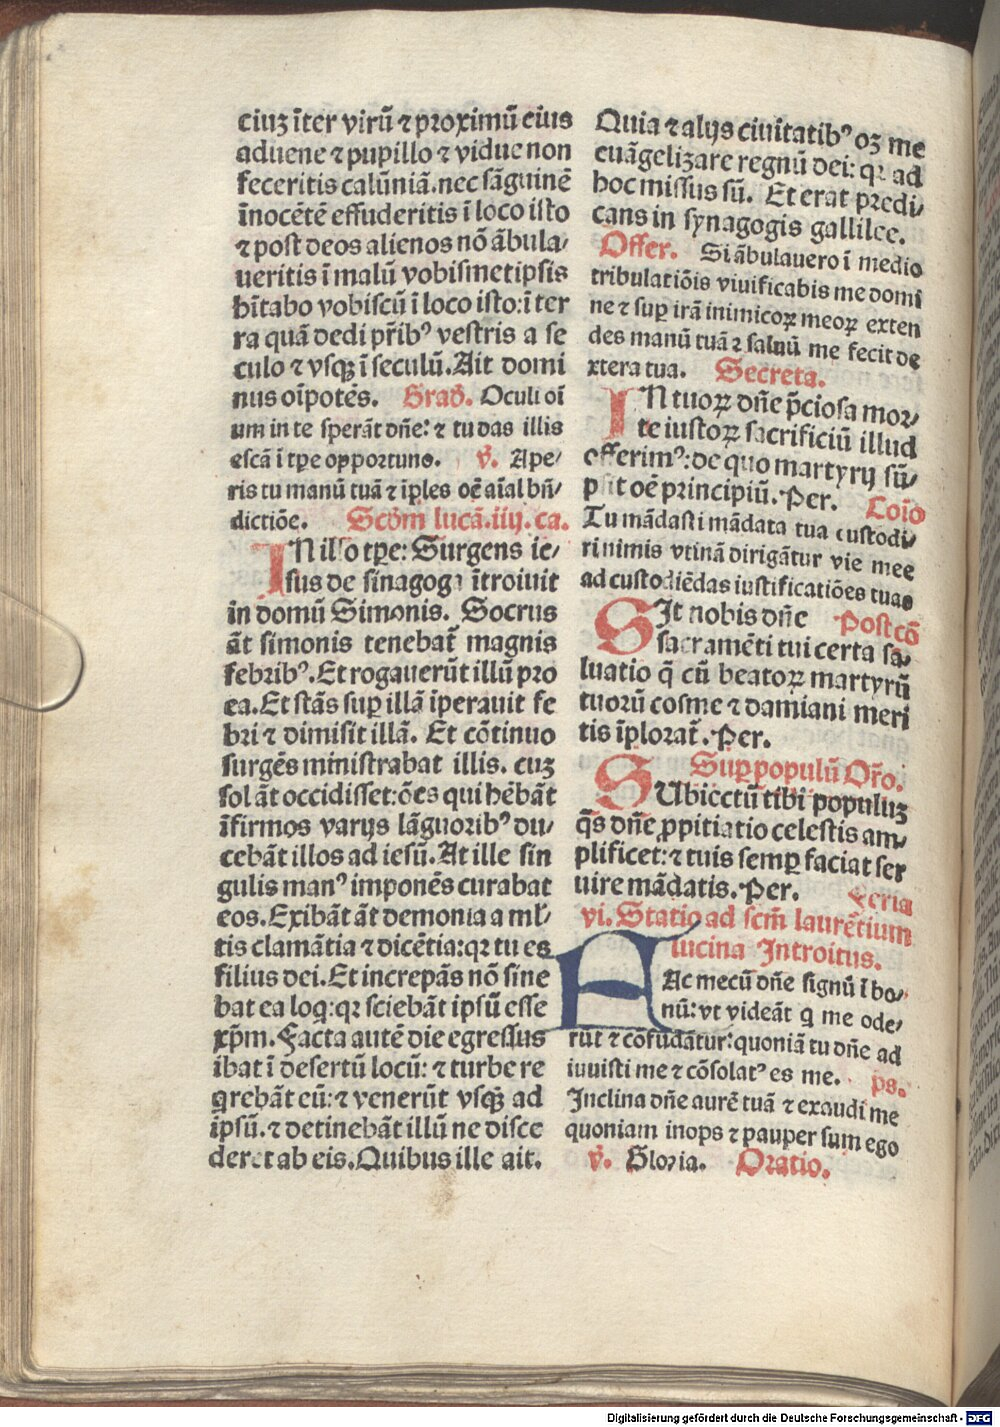 ciuꝫ īter virū ⁊ proximū eius
aduene ⁊ pupillo ⁊ vidue non
feceritis calūniā. nec sāguinē
īnocētē effuderitis ī loco isto
⁊ post deos alienos nō ābula/
ueritis ī malū vobismetipsis
hītabo vobiscū ī loco isto: ī ter
ra quā dedi pr̄ibꝰ vestris a se
culo ⁊ vsqꝫ ī seculū. Ait domi
nus oīpotēs. Grad̄. Oculi oī
um in te sperāt dn̄e: ⁊ tu das illis
escā ī tꝑe opportuno. v̄. Ape/
ris tu manū tuā ⁊ īples oē aīal bn̄/
dictiōe. Scd̄m lucā. iiij. ca.
IN illo tꝑe: Surgens ie/
sus de sinagoga ītroiuit
in domū Simonis. Socrus
āt simonis tenebat̄ magnis
febribꝰ. Et rogauerūt illū pro
ea. Et stās suꝑ illā īperauit fe
bri ⁊ dimisit illā. Et cōtinuo
surgēs ministrabat illis. cuꝫ
sol āt occidisset: ōes qui hēbāt
īfirmos varijs lāguoribꝰ du/
cebāt illos ad iesū. At ille sin
gulis manꝰ imponēs curabat
eos. Exibāt āt demonia a ml̄/
tis clamātia ⁊ dicētia: qꝛ tu es
filius dei. Et increpās nō sine
bat ea loq̄: qꝛ sciebāt ipsū esse
xp̄m. Facta autē die egressus
ibat ī desertū locū: ⁊ turbe re
q̄rebāt eū: ⁊ venerūt vsqꝫ ad
ip̄sū. ⁊ detinebāt illū ne disce
deret ab eis. Quibus ille ait.
Quia ⁊ alijs ciuitatibꝰ oꝫ me
euāgelizare regnū dei: qꝛ ad
hoc missus sū. Et erat predi/
cans in synagogis gallilee.
Offer. Si ābulauero ī medio
tribulatiōis viuificabis me domi
ne ⁊ suꝑ irā inimicoꝝ meoꝝ exten
des manū tuā ⁊ saluū me fecit de
xtera tua. Secreta.
IN tuoꝝ dn̄e p̄ciosa mor/
te iustoꝝ sacrificiū illud
offerimꝰ: de quo martyrij sū/
psit oē principiū. Per. Cōio
Tu mādasti mādata tua custodi/
ri nimis vtinā dirigātur vie mee
ad custodiēdas iustificatiōes tuas
SIt nobis dn̄e Postcō
sacramēti tui certa sa/
luatio q̄ cū beatoꝝ martyrū
tuorū cosme ⁊ damiani meri
tis īplorat̄. Per.
Suꝑ populū Or̄o.
SUbiectū tibi populuꝫ
q̄s dn̄e ꝓpitiatio celestis am/
plificet: ⁊ tuis semꝑ faciat ser
uire mādatis. Per. Feria
vi. Statio ad scm̄ laurētium
lucina Introitus.
FAc mecū dn̄e signū ī bo/
nū: vt videāt q̄ me ode/
rūt ⁊ cōfudātur: quoniā tu dn̄e ad
iuuisti me ⁊ cōsolatꝰ es me. ps.
Inclina dn̄e aurē tuā ⁊ exaudi me
quoniam inops ⁊ pauper sum ego
v̄. Gloria. Oratio.
Digitalisierung gefördert durch die Deutsche Forschungsgemeinschaft - DFG